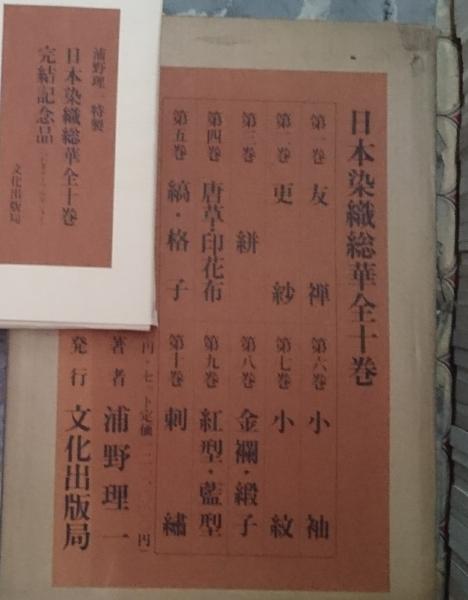 日本染織総華全十巻
第一巻 友禅 第六巻 小袖
第二巻 更紗 第七巻 小紋
第三巻 絣 第八巻 金襴・緞子
第四巻 唐草・印花布 第九巻 紅型・藍型
第五巻 縞・格子 第十巻 刺繍
円・セット定価 円
著者 浦野理一
発行 文化出版局
浦野理一 特製
日本染織総華全十巻
完結記念品
文化出版局